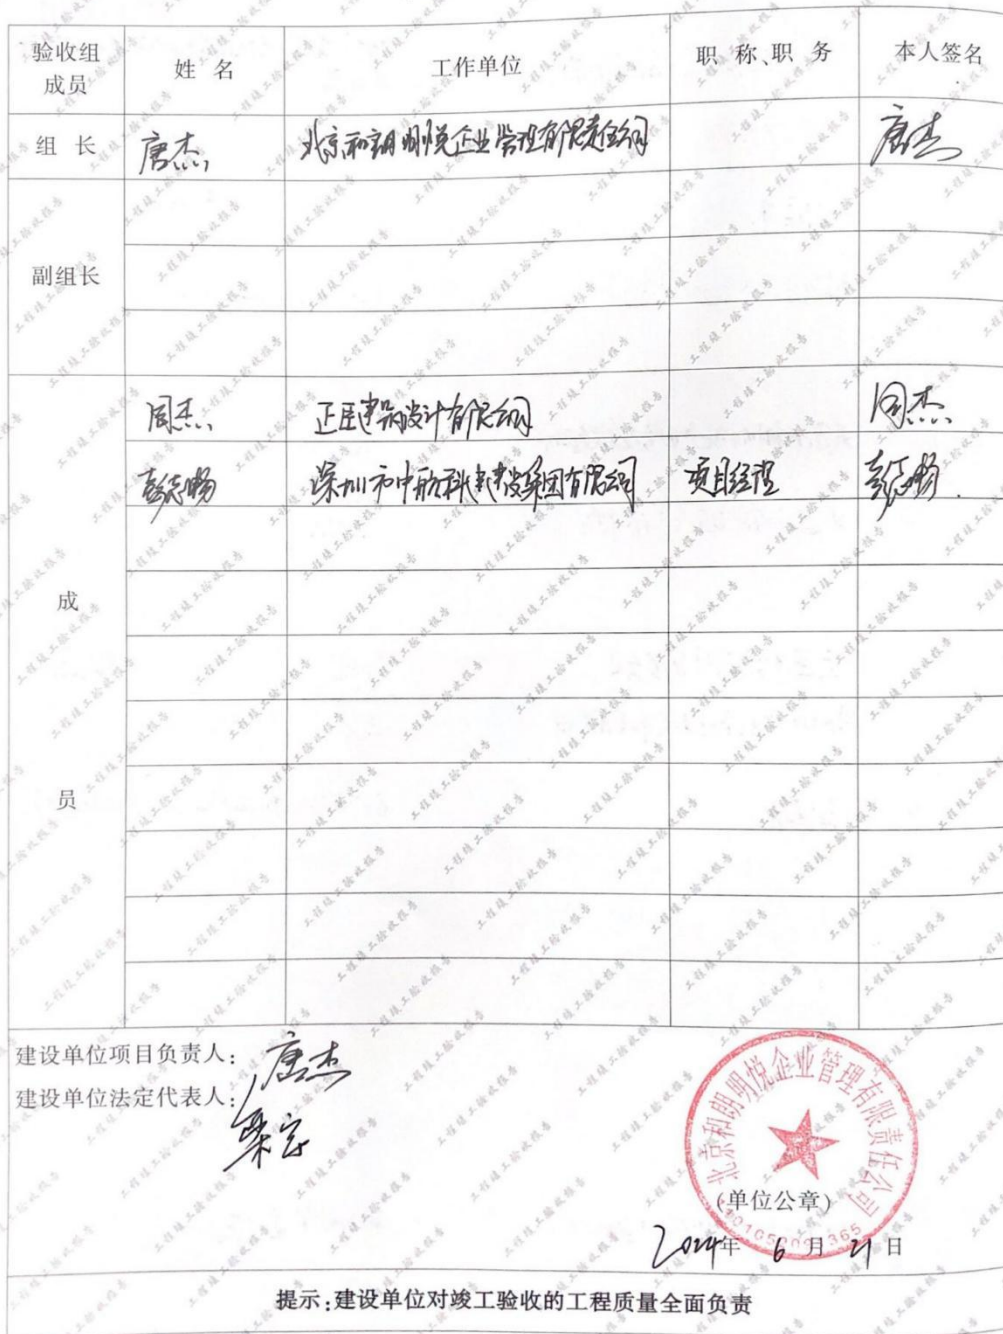 验收组成员 姓 名 工作单位 职 称、职 务 本人签名
组 长 唐杰 北京和朗明悦企业管理有限责任公司 唐杰
副组长
周杰 正匡建筑设计有限公司 周杰
彭志畅 深圳市中航科建建设集团有限公司 项目经理 彭志畅
成
员
建设单位项目负责人: 唐杰
建设单位法定代表人:
北京和朗明悦企业管理有限责任公司
(单位公章)
2024年 6 月 21 日
提示:建设单位对竣工验收的工程质量全面负责
工程竣工验收报告